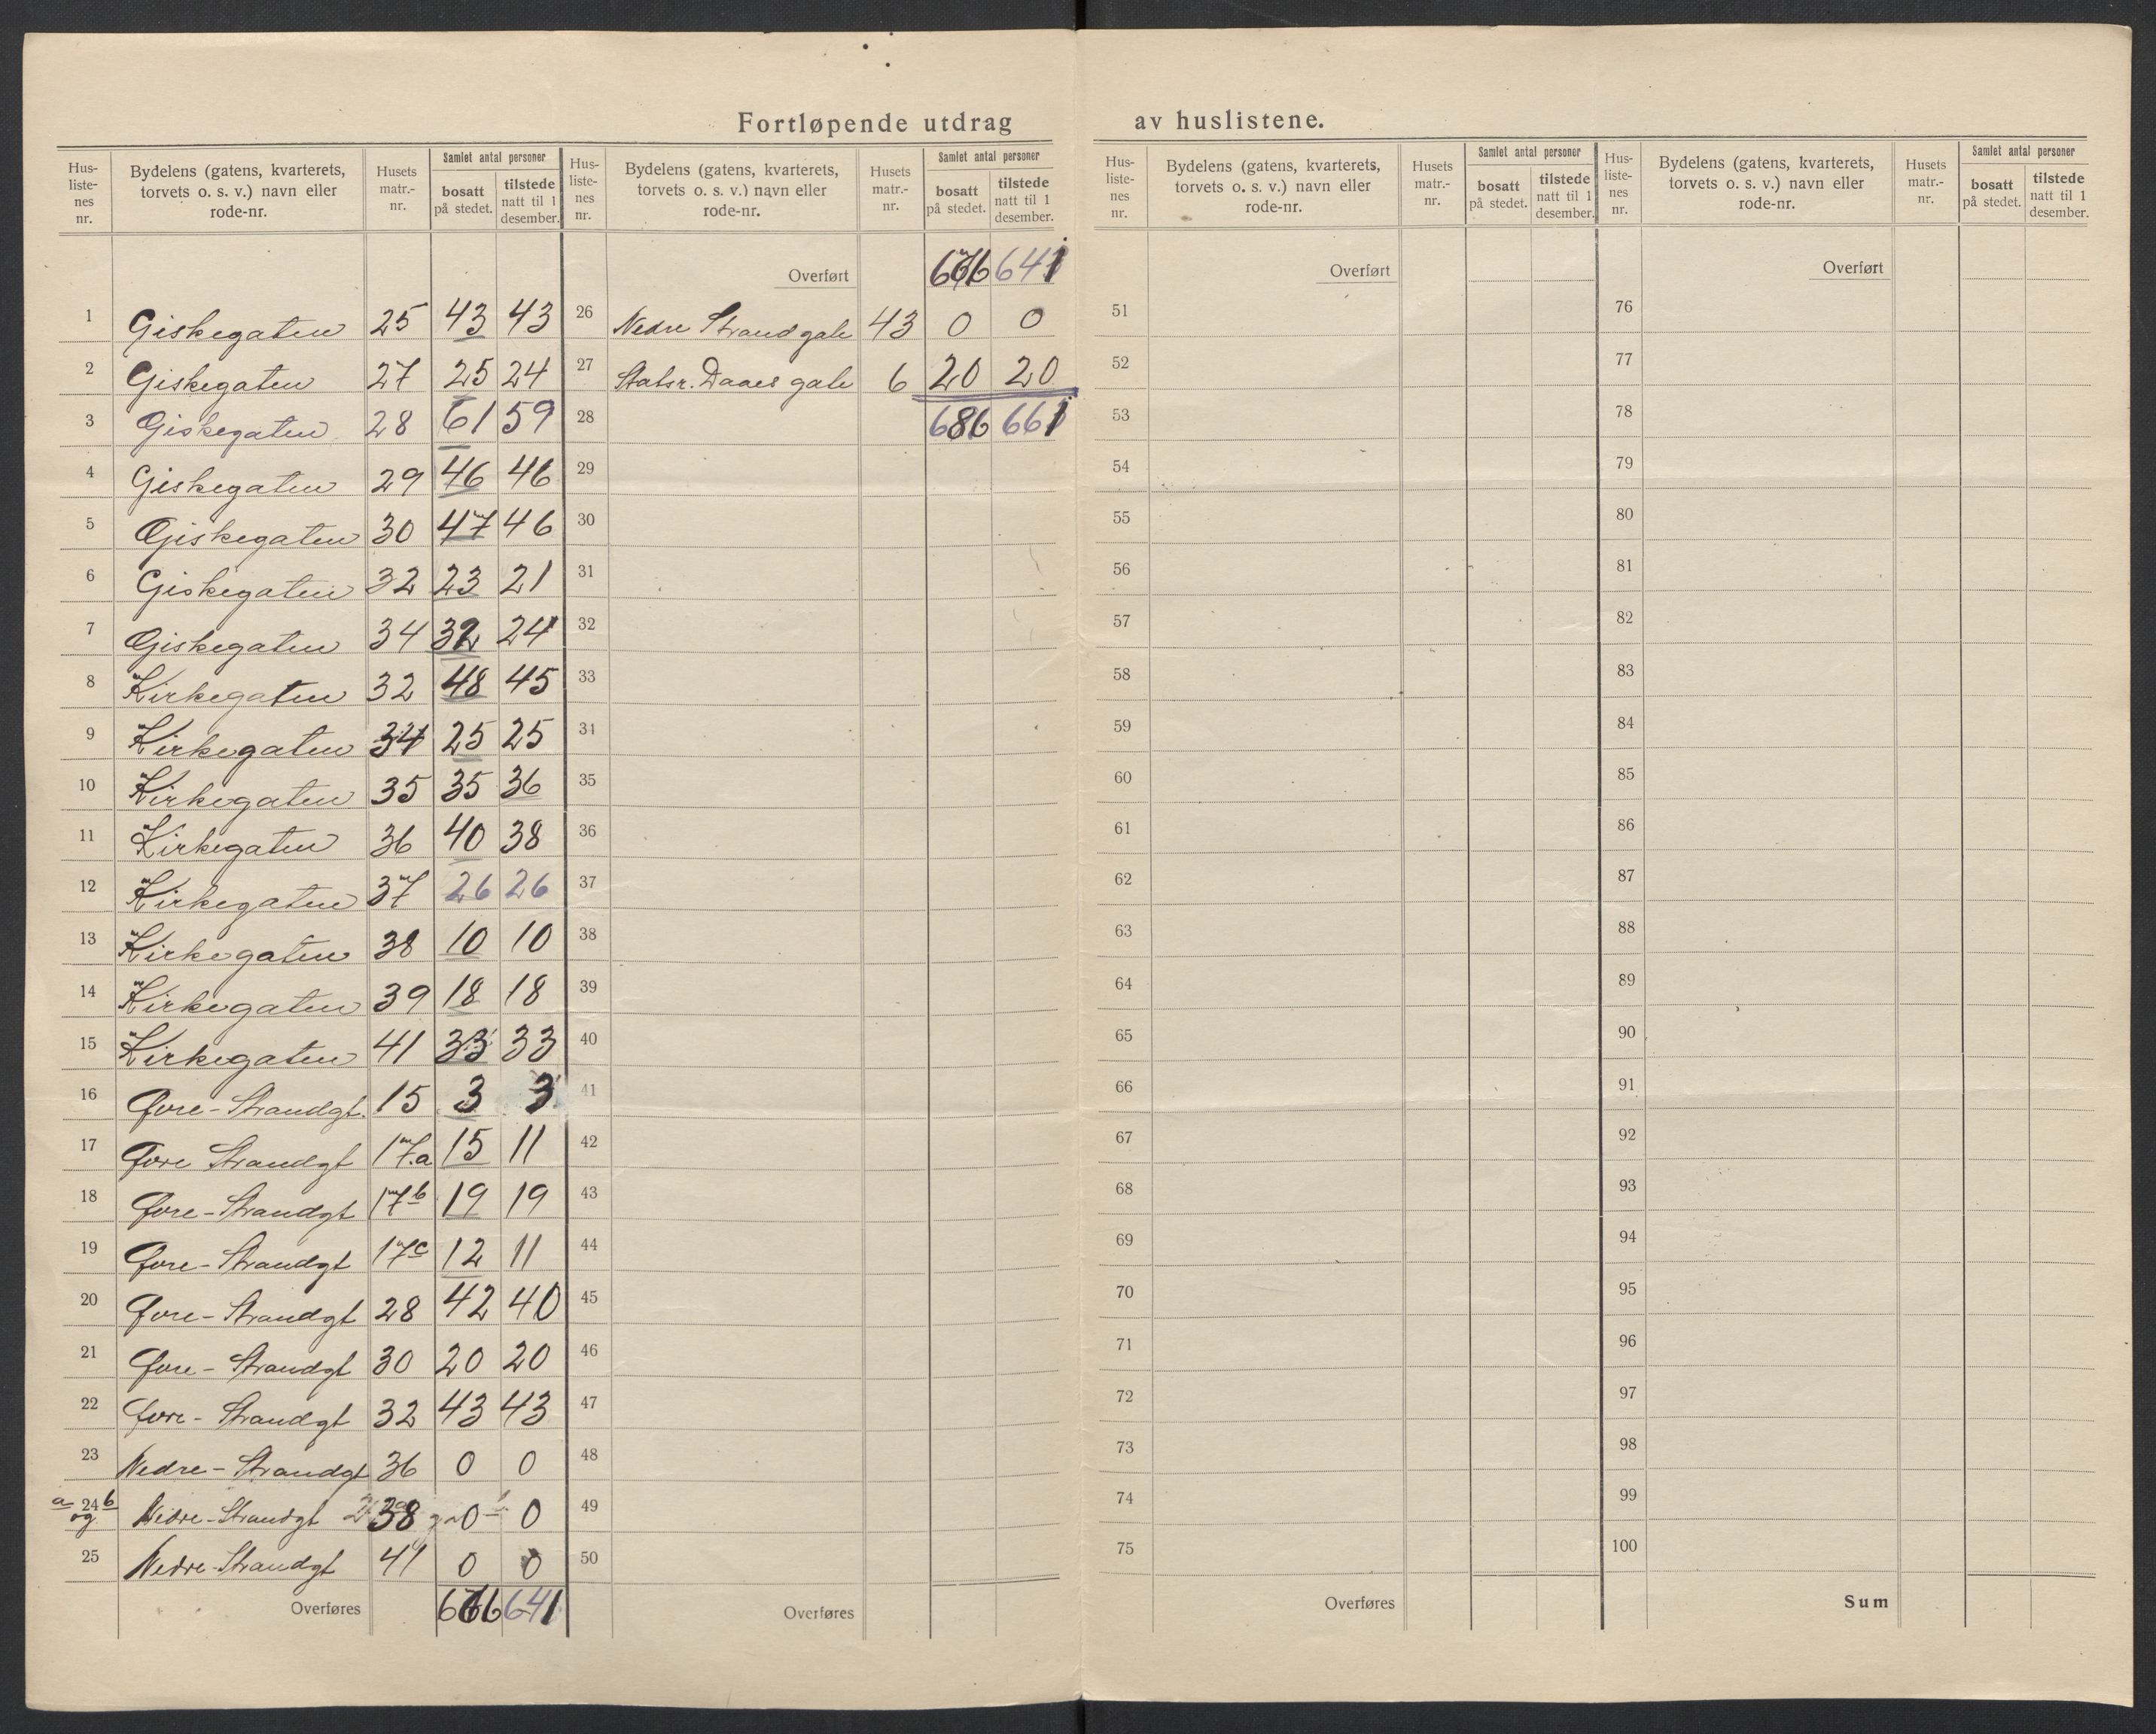 Fortløpende utdrag av huslistene.
Hus-listenes nr. | Bydelens (gatens, kvarterets, torvets o. s. v.) navn eller rode-nr. | Husets matr.-nr. | Samlet antal personer bosatt på stedet. | tilstede natt til 1 desember.
1 Giskegaten 25 43 43
2 Giskegaten 27 25 24
3 Giskegaten 28 61 59
4 Giskegaten 29 46 46
5 Giskegaten 30 47 46
6 Giskegaten 32 23 21
7 Giskegaten 34 32 24
8 Kirkegaten 32 48 45
9 Kirkegaten 34 25 25
10 Kirkegaten 35 35 36
11 Kirkegaten 36 40 38
12 Kirkegaten 37 26 26
13 Kirkegaten 38 10 10
14 Kirkegaten 39 18 18
15 Kirkegaten 41 33 33
16 Øvre-Strandgt. 15 3 3
17 Øvre Strandgt 17.a 15 11
18 Øvre-Strandgt 17b 19 19
19 Øvre-Strandgt 17c 12 11
20 Øvre-Strandgt 28 42 40
21 Øvre-Strandgt 30 20 20
22 Øvre-Strandgt 32 43 43
23 Nedre-Strandgt 36 0 0
a og 24 b Nedre-Strandgt 38 0 0
25 Nedre-Strandgt 41 0 0
Overføres 666 641
Hus-listenes nr. | Bydelens (gatens, kvarterets, torvets o. s. v.) navn eller rode-nr. | Husets matr.-nr. | Samlet antal personer bosatt på stedet. | tilstede natt til 1 desember.
Overført 666 641
26 Nedre Strandgate 43 0 0
27 Statsr. Daaes gate 6 20 20
28 686 661
29
30
31
32
33
34
35
36
37
38
39
40
41
42
43
44
45
46
47
48
49
50
Overføres
Hus-listenes nr. | Bydelens (gatens, kvarterets, torvets o. s. v.) navn eller rode-nr. | Husets matr.-nr. | Samlet antal personer bosatt på stedet. | tilstede natt til 1 desember.
Overført
51
52
53
54
55
56
57
58
59
60
61
62
63
64
65
66
67
68
69
70
71
72
73
74
75
Overføres
Hus-listenes nr. | Bydelens (gatens, kvarterets, torvets o. s. v.) navn eller rode-nr. | Husets matr.-nr. | Samlet antal personer bosatt på stedet. | tilstede natt til 1 desember.
Overført
76
77
78
79
80
81
82
83
84
85
86
87
88
89
90
91
92
93
94
95
96
97
98
99
100
Sum